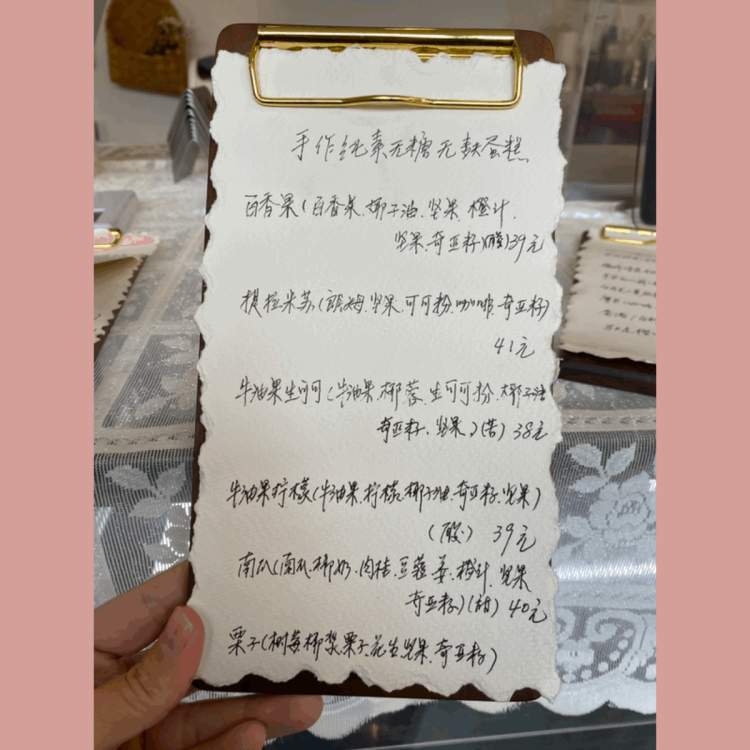 手作纯素无糖无麸蛋糕
百香果(百香果.椰子油.坚果.橙汁.
坚果.奇亚籽)(酸)39元
提拉米苏(朗姆.坚果.可可粉.咖啡.奇亚籽)
41元
牛油果生可可(牛油果.椰蓉.生可可粉.椰子油
奇亚籽.坚果)(苦)38元
牛油果柠檬(牛油果.柠檬.椰子油.奇亚籽.坚果)
(酸) 39元
南瓜(南瓜.椰奶.肉桂.豆蔻.姜.橙汁.坚果
奇亚籽)(甜) 40元
栗子(树莓椰浆栗子.花生坚果.奇亚籽)